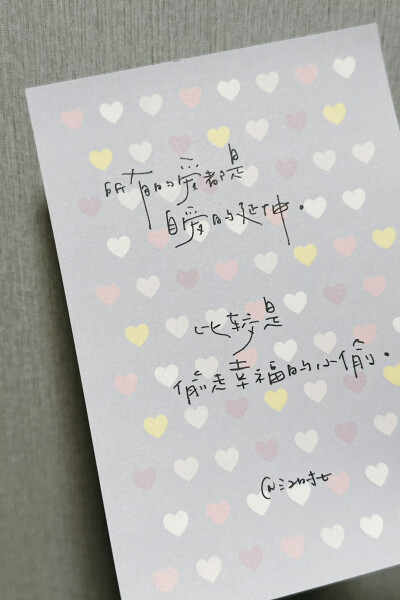 所有的爱都是
自爱的延伸。
比较是
偷走幸福的小偷。